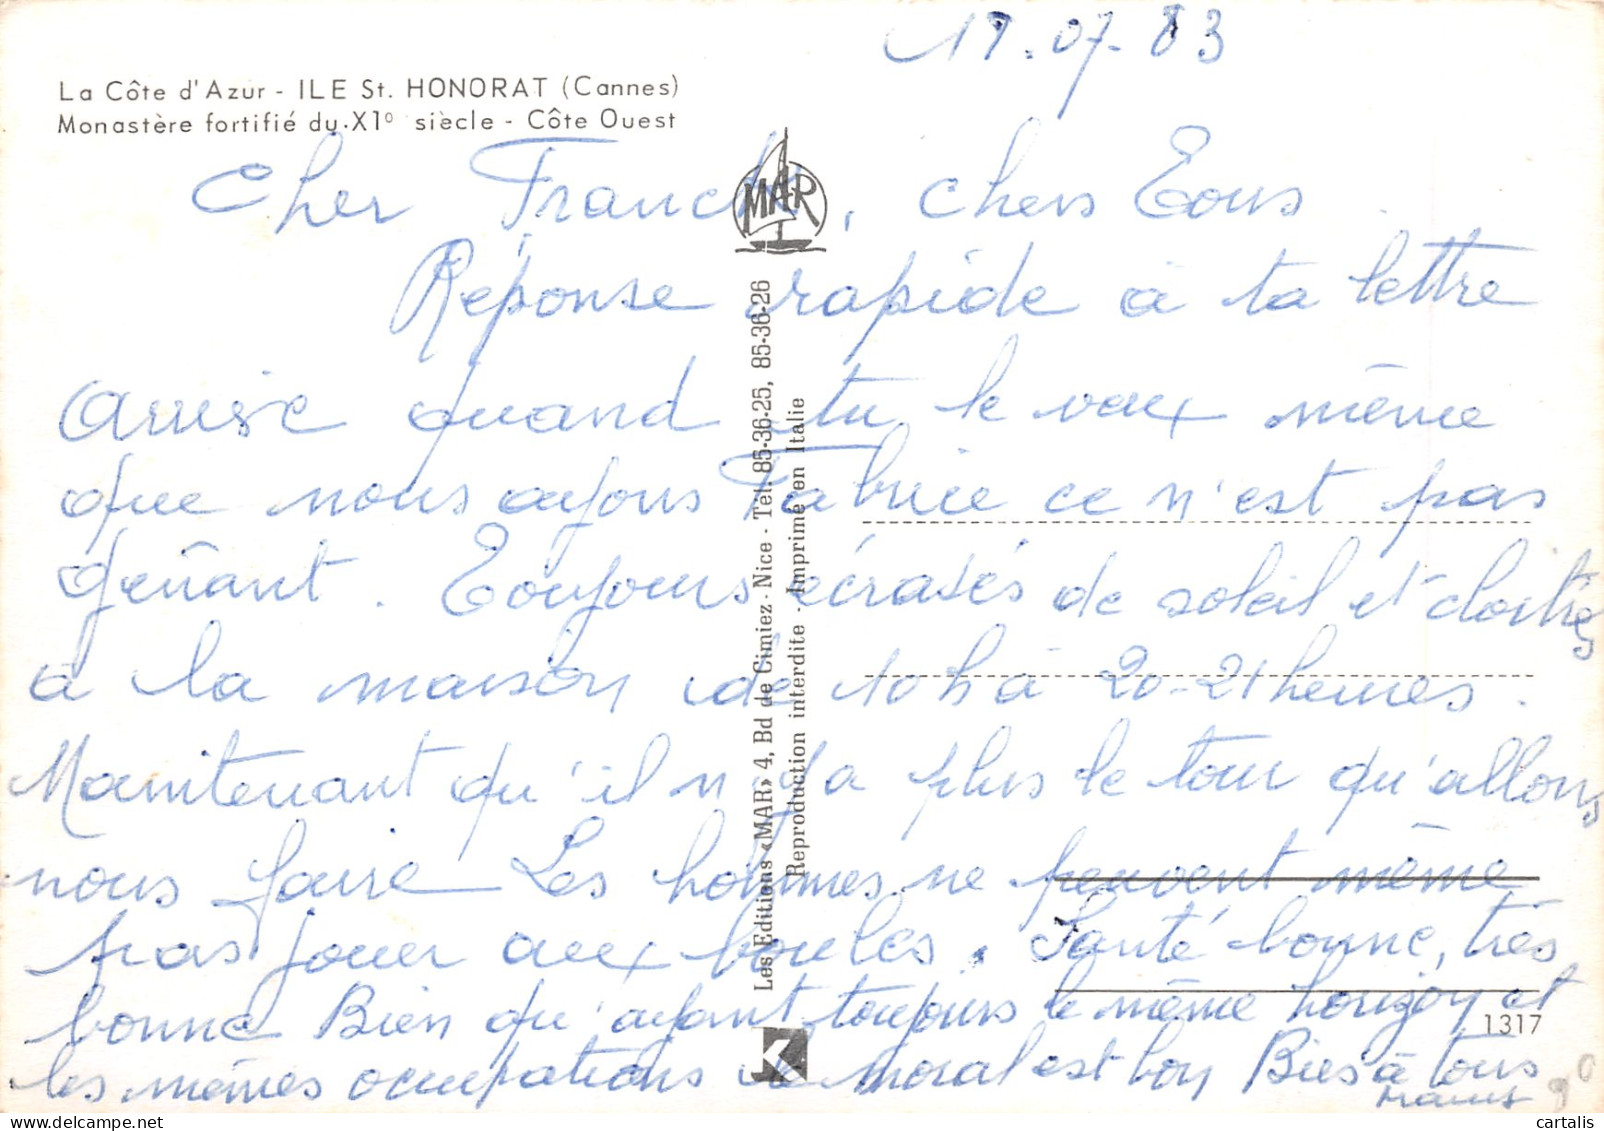 19.07.83
La Côte d'Azur - ILE St. HONORAT (Cannes)
Monastère fortifié du XI° siècle - Côte Ouest
MAR
Cher Franck, chers Tous.
Réponse rapide à ta lettre
Arrive quand tu le veux même
que nous ayons Fabrice ce n'est pas
gênant. Toujours écrasés de soleil et cloîtrés
à la maison de 10h à 20-21 heures.
Maintenant qu'il n'y a plus le tour qu'allons
nous faire Les hommes ne peuvent même
pas jouer aux boules. Santé bonne, très
bonne Bien qu'ayant toujours le même horizon et
les mêmes occupations le moral est bon Bises à tous
Les Editions «MAR» 4, Bd de Cimiez - Nice - Tél. 85-36-25, 85-36-26
Reproduction interdite - Imprimé en Italie
K
1317
cartalis
delcampe.net